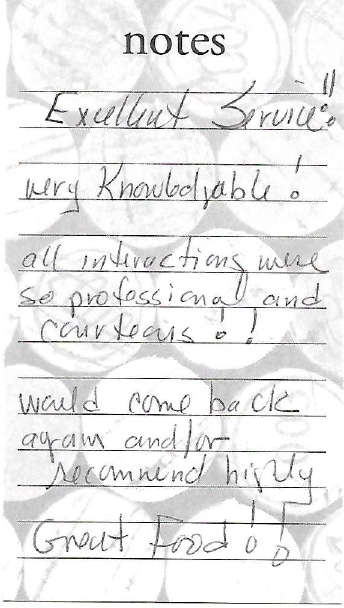 notes
Excellent Service!!
very Knowledjable!
all interactions were
so professional and
courteous!!
would come back
again and/or
recommend highly
Great Food!!